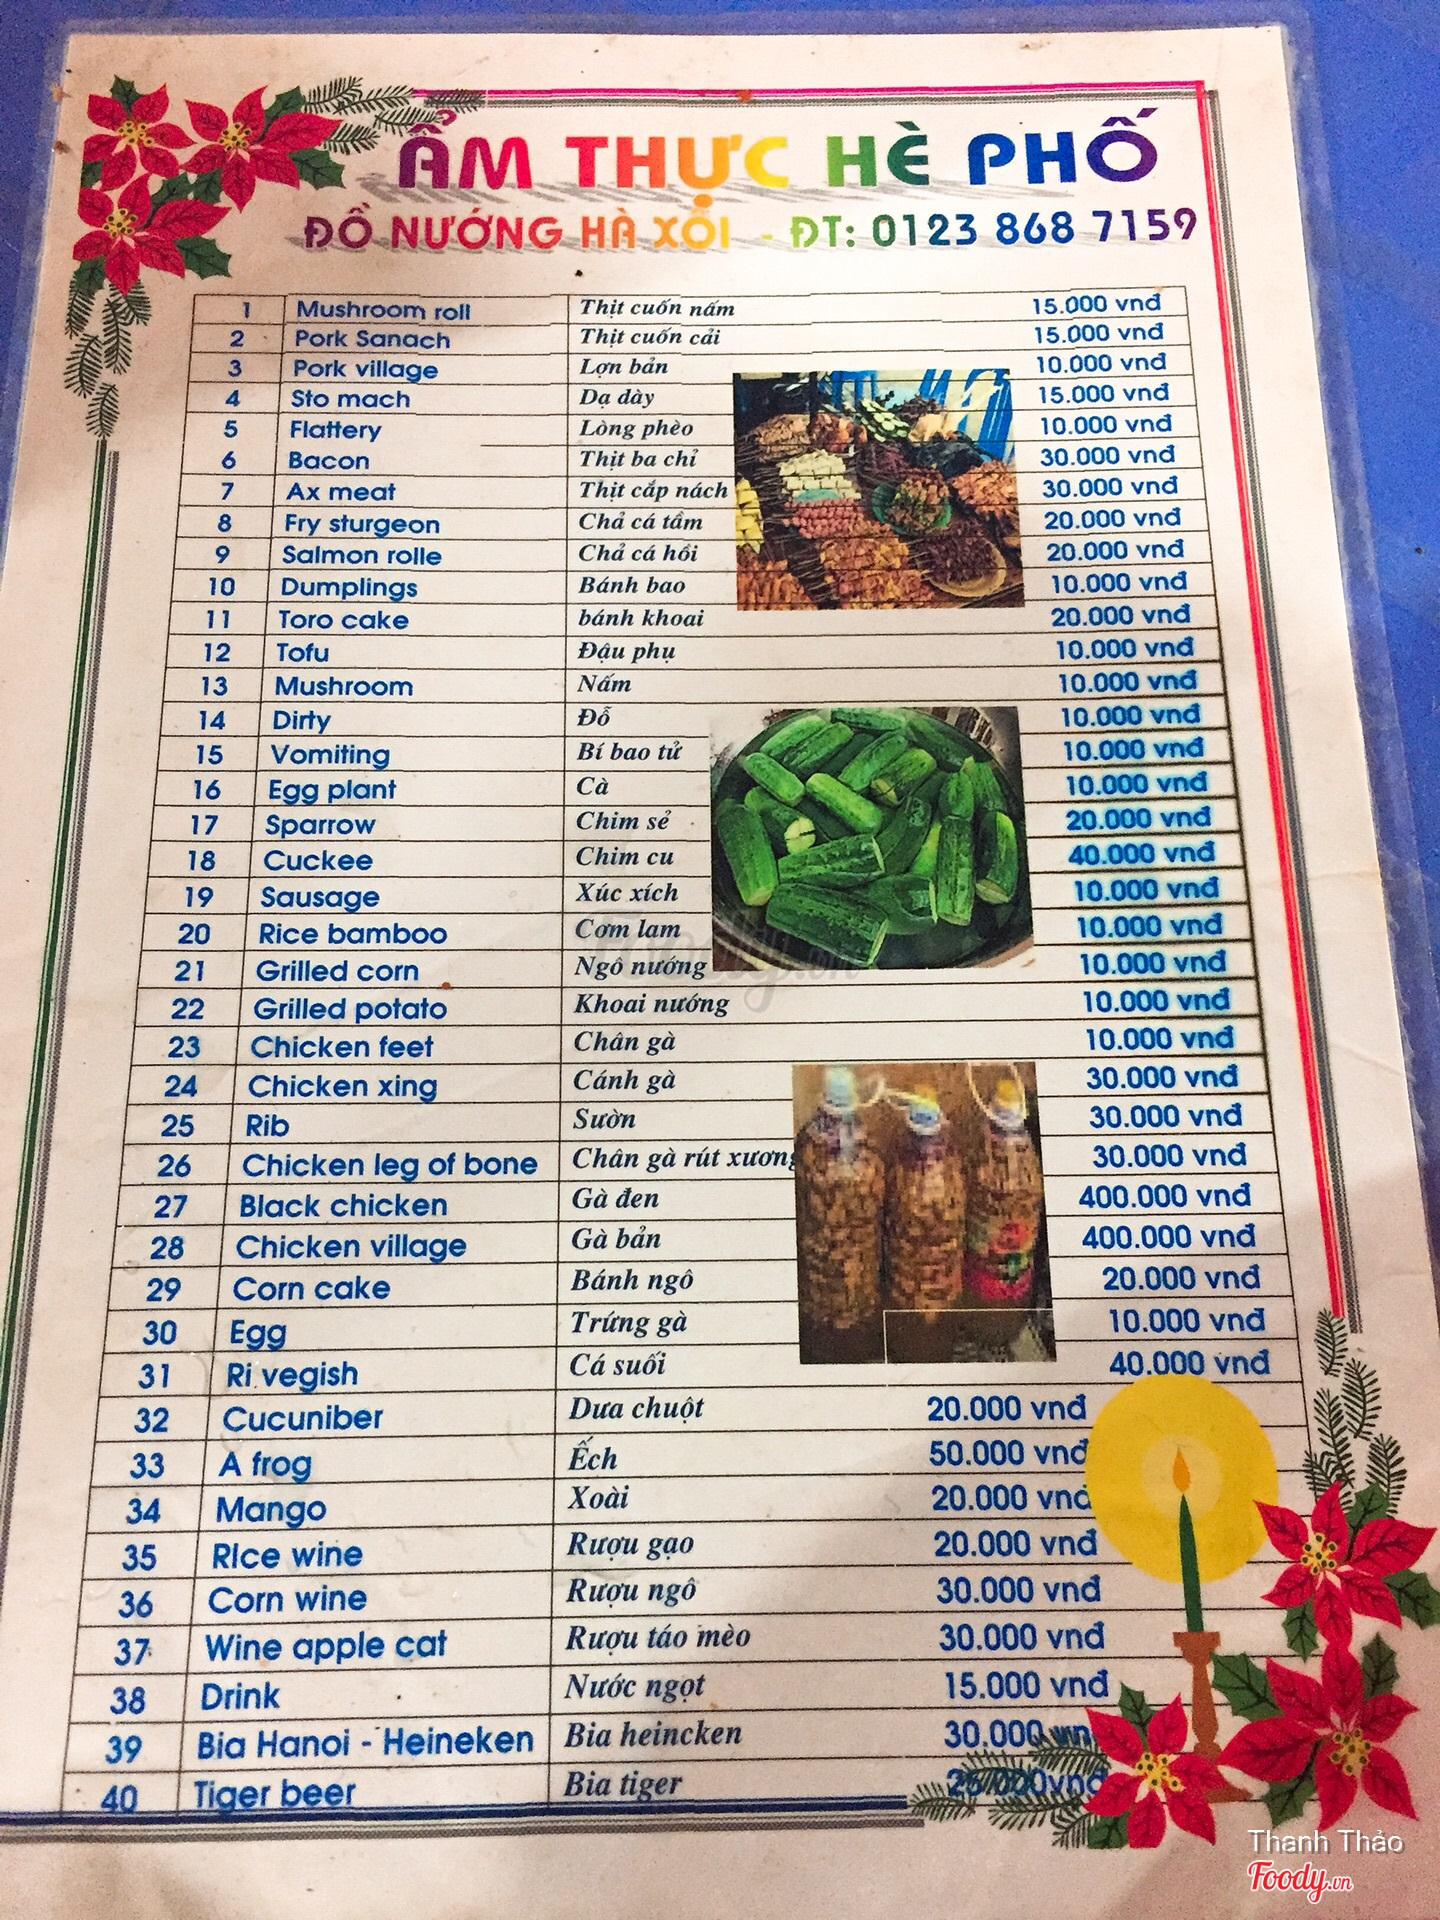 ẨM THỰC HÈ PHỐ
ĐỒ NƯỚNG HÀ XỒI - ĐT: 0123 868 7159
1 Mushroom roll Thịt cuốn nấm 15.000 vnđ
2 Pork Sanach Thịt cuốn cải 15.000 vnđ
3 Pork village Lợn bản 10.000 vnđ
4 Sto mach Dạ dày 15.000 vnđ
5 Flattery Lòng phèo 10.000 vnđ
6 Bacon Thịt ba chỉ 30.000 vnđ
7 Ax meat Thịt cắp nách 30.000 vnđ
8 Fry sturgeon Chả cá tầm 20.000 vnđ
9 Salmon rolle Chả cá hồi 20.000 vnđ
10 Dumplings Bánh bao 10.000 vnđ
11 Toro cake bánh khoai 20.000 vnđ
12 Tofu Đậu phụ 10.000 vnđ
13 Mushroom Nấm 10.000 vnđ
14 Dirty Đỗ 10.000 vnđ
15 Vomiting Bí bao tử 10.000 vnđ
16 Egg plant Cà 10.000 vnđ
17 Sparrow Chim sẻ 20.000 vnđ
18 Cuckee Chim cu 40.000 vnđ
19 Sausage Xúc xích 10.000 vnđ
20 Rice bamboo Cơm lam 10.000 vnđ
21 Grilled corn Ngô nướng 10.000 vnđ
22 Grilled potato Khoai nướng 10.000 vnđ
23 Chicken feet Chân gà 10.000 vnđ
24 Chicken xing Cánh gà 30.000 vnđ
25 Rib Sườn 30.000 vnđ
26 Chicken leg of bone Chân gà rút xương 30.000 vnđ
27 Black chicken Gà đen 400.000 vnđ
28 Chicken village Gà bản 400.000 vnđ
29 Corn cake Bánh ngô 20.000 vnđ
30 Egg Trứng gà 10.000 vnđ
31 Ri vegish Cá suối 40.000 vnđ
32 Cucuniber Dưa chuột 20.000 vnđ
33 A frog Ếch 50.000 vnđ
34 Mango Xoài 20.000 vnđ
35 RIce wine Rượu gạo 20.000 vnđ
36 Corn wine Rượu ngô 30.000 vnđ
37 Wine apple cat Rượu táo mèo 30.000 vnđ
38 Drink Nước ngọt 15.000 vnđ
39 Bia Hanoi - Heineken Bia heincken 30.000 vn
40 Tiger beer Bia tiger 25.000vnđ
Foody.vn
Thanh Thảo
Foody.vn